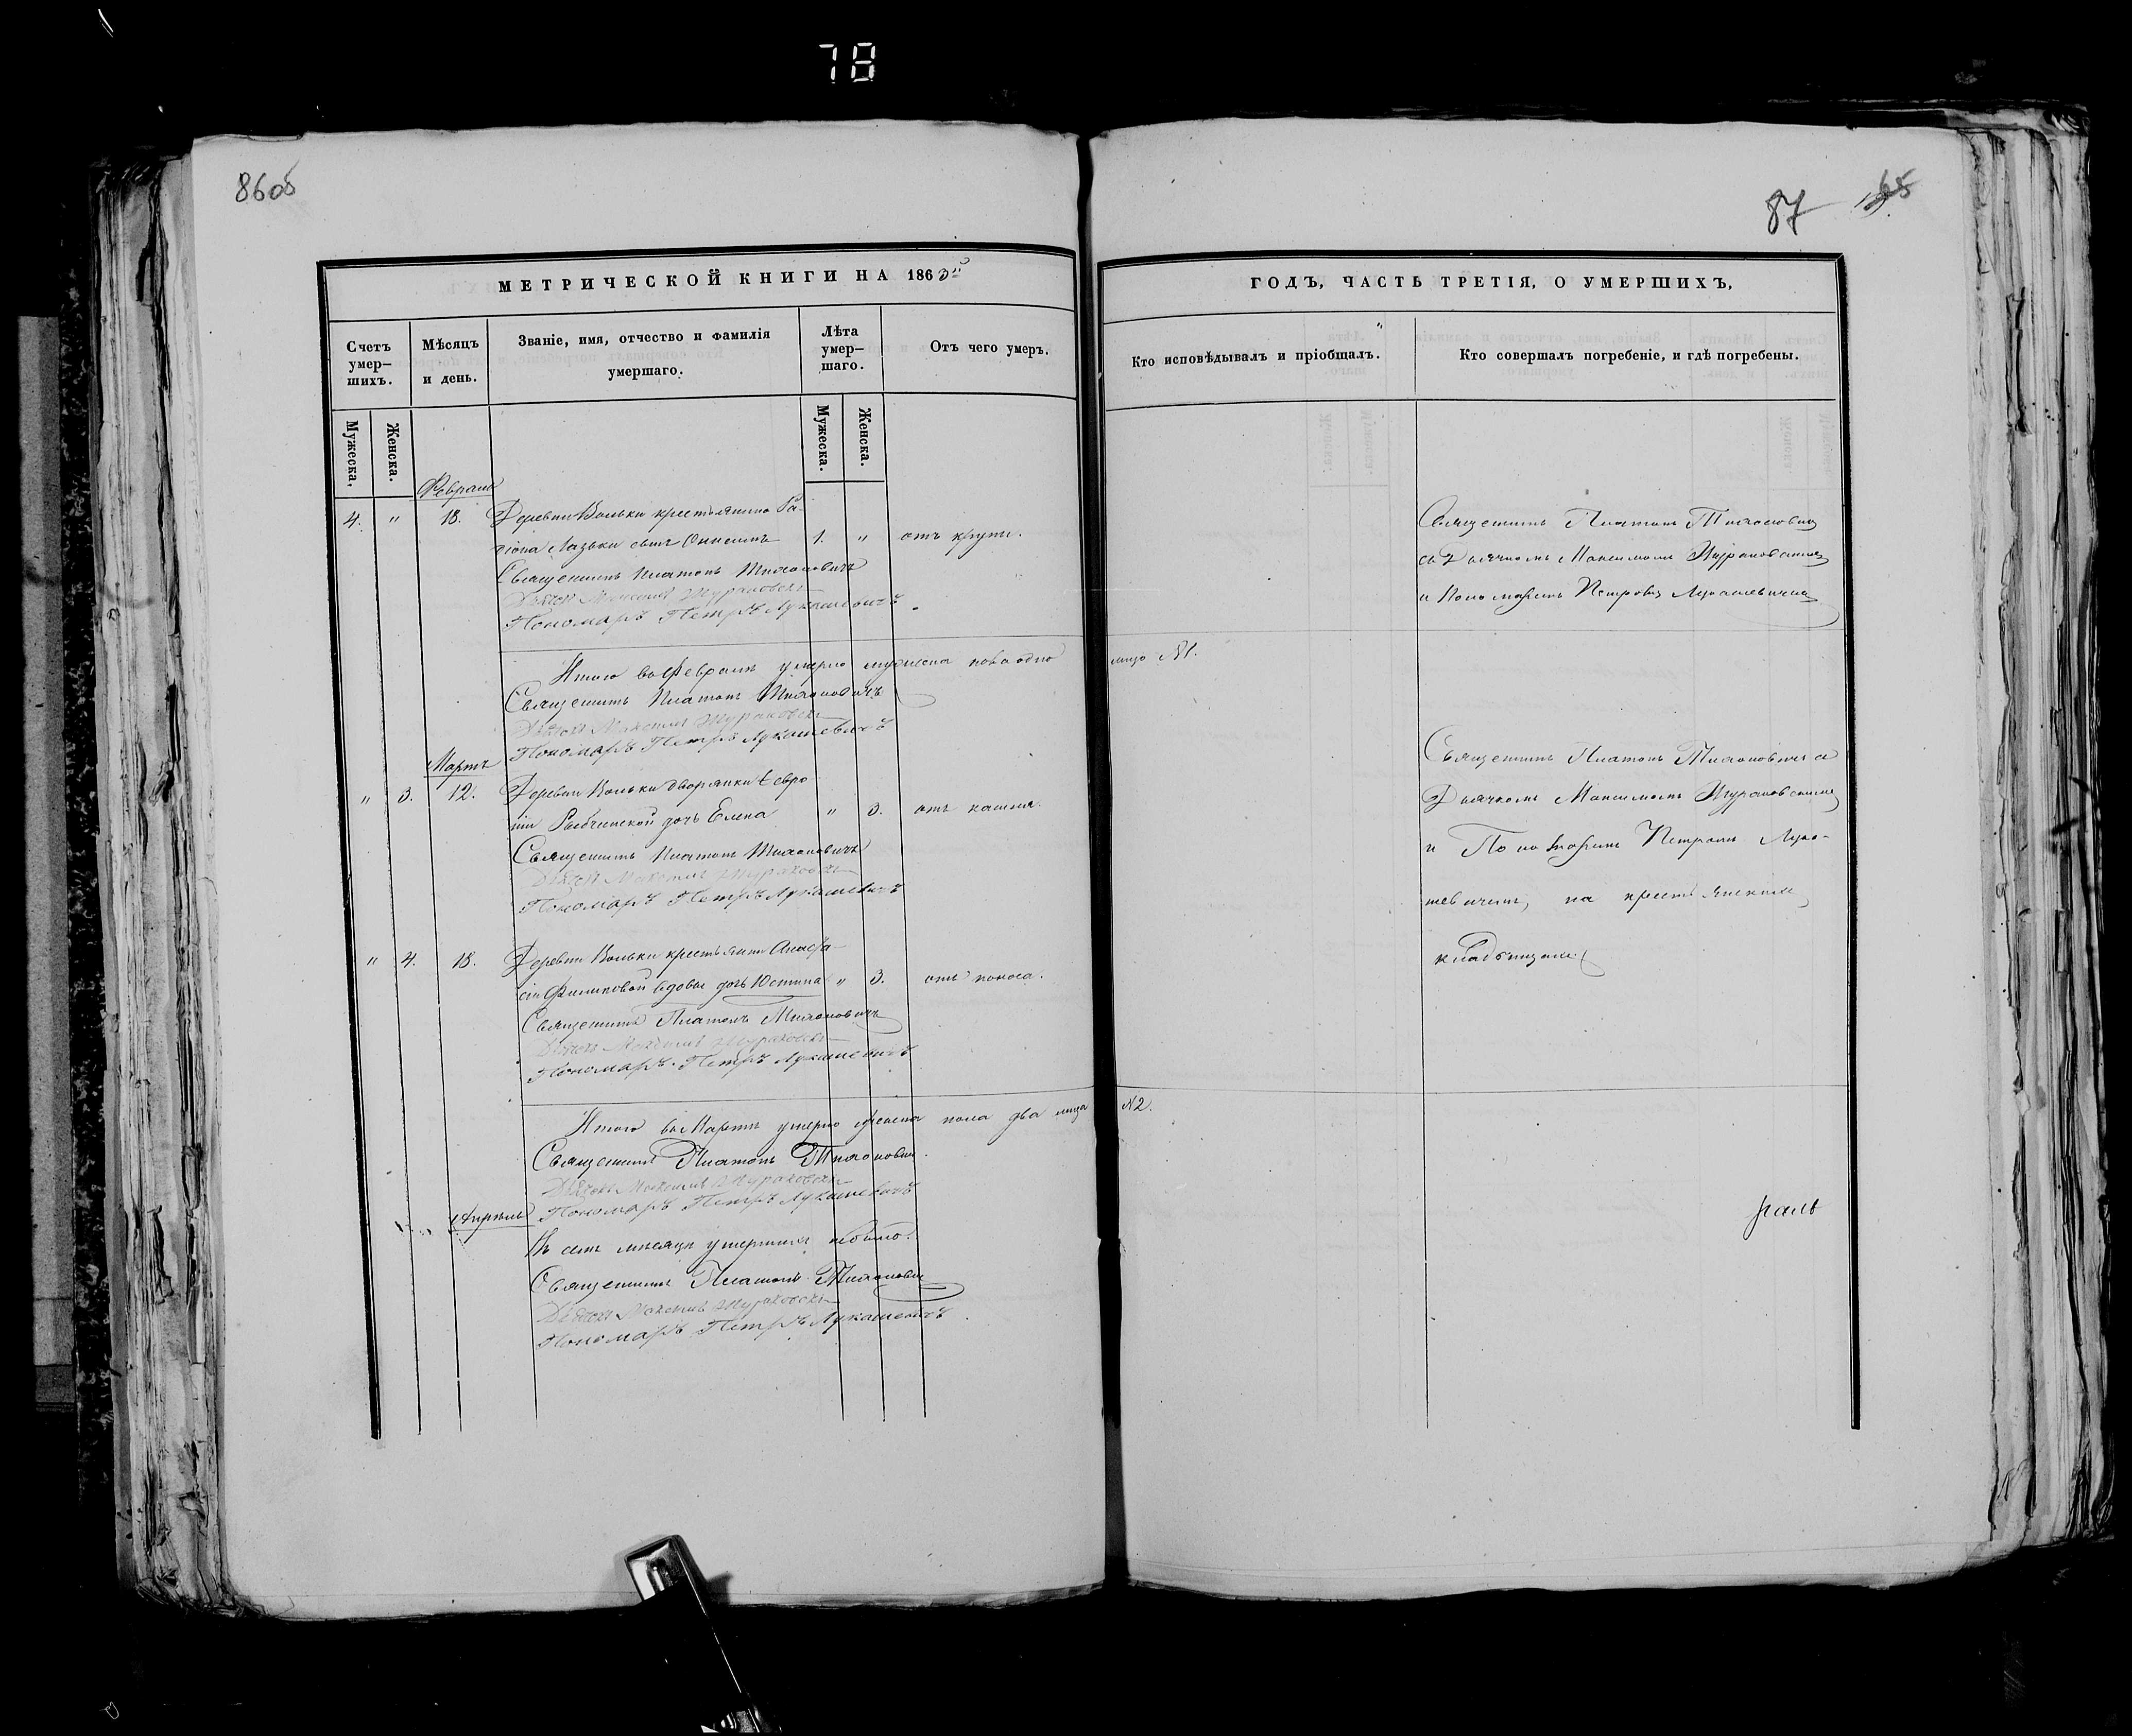 78
86об
87
МЕТРИЧЕСКОЙ КНИГИ НА 1863й
ГОДЪ, ЧАСТЬ ТРЕТІЯ, О УМЕРШИХЪ,
Счетъ умер-шихъ.
Мѣсяцъ и день.
Званіе, имя, отчество и фамилія умершаго.
Лѣта умер-шаго.
Отъ чего умеръ.
Кто исповѣдывалъ и пріобщалъ.
Кто совершалъ погребеніе, и гдѣ погребены.
Мужеска.
Женска.
Мужеска.
Женска.
Февраль
4. " 18. Деревни Вольки крестьянина Ла-
ріона Лазьки сынъ Онисимъ 1. " отъ крупы.
Священникъ Платонъ Тихоновичъ
Дьячекъ Максимъ Жураковскій
Пономарь Петръ Лукашевичъ
Священникъ Платонъ Тихоновичъ
съ Дьячкомъ Максимомъ Жураковскимъ
и Пономаремъ Петромъ Лукашевичемъ
Итого въ Февралѣ умерло мужеска пола одно лицо №1.
Священникъ Платонъ Тихоновичъ
Дьячекъ Максимъ Жураковскій
Пономарь Петръ Лукашевичъ
Мартъ
" 3. 12. Деревни Вольки дворянки Евро-
ніи дочь Елена " 3. отъ кашля.
Священникъ Платонъ Тихоновичъ
Дьячекъ Максимъ Жураковскій
Пономарь Петръ Лукашевичъ
Священникъ Платонъ Тихоновичъ съ
Дьячкомъ Максимомъ Жураковскимъ
и Пономаремъ Петромъ Лука-
шевичемъ, на крестьянскомъ
кладбищѣ
" 4. 18. Деревни Вольки крестьянки Анаста-
сіи вдовы дочь Юстина " 3. отъ поноса.
Священникъ Платонъ Тихоновичъ
Дьячекъ Максимъ Жураковскій
Пономарь Петръ Лукашевичъ
Итого въ Мартѣ умерло женска пола два лица №2.
Священникъ Платонъ Тихоновичъ
Дьячекъ Максимъ Жураковскій
Пономарь Петръ Лукашевичъ
Апрѣль
Въ семъ мѣсяцѣ умершихъ небыло.
Священникъ Платонъ Тихоновичъ
Дьячекъ Максимъ Жураковскій
Пономарь Петръ Лукашевичъ